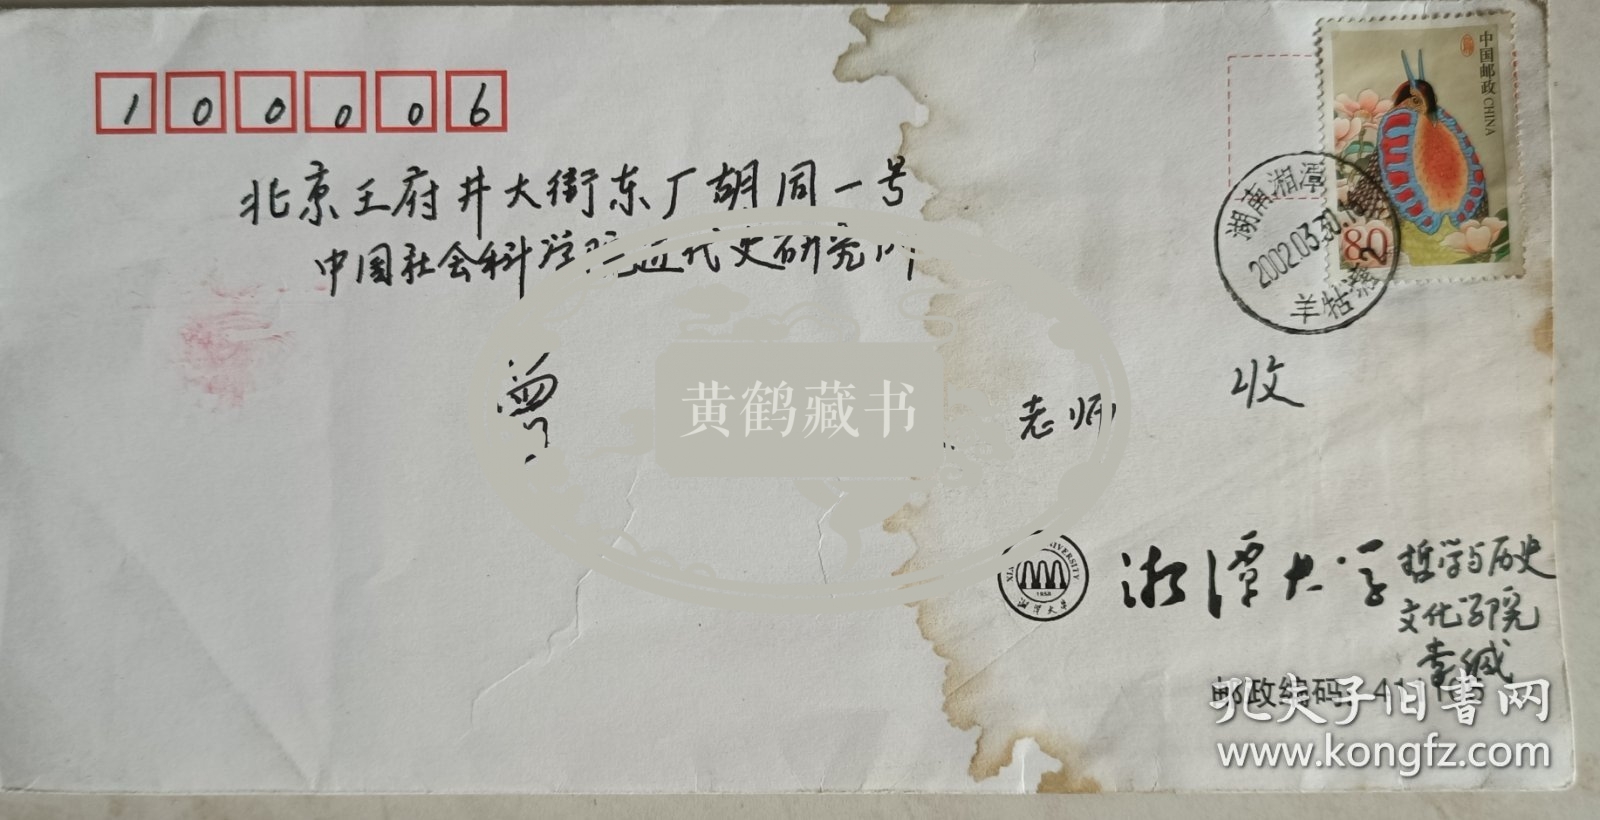 100006
北京王府井大街东厂胡同一号
中国社会科学院近代史研究所
曾
老师
收
中国邮政 CHINA
80
湖南湘潭
2002.03.30.1
羊牯塘2
黄鹤藏书
1958
湘潭大学
湘潭大学
哲学与历史
文化学院
李缄
邮政编码
孔夫子旧书网
www.kongfz.com